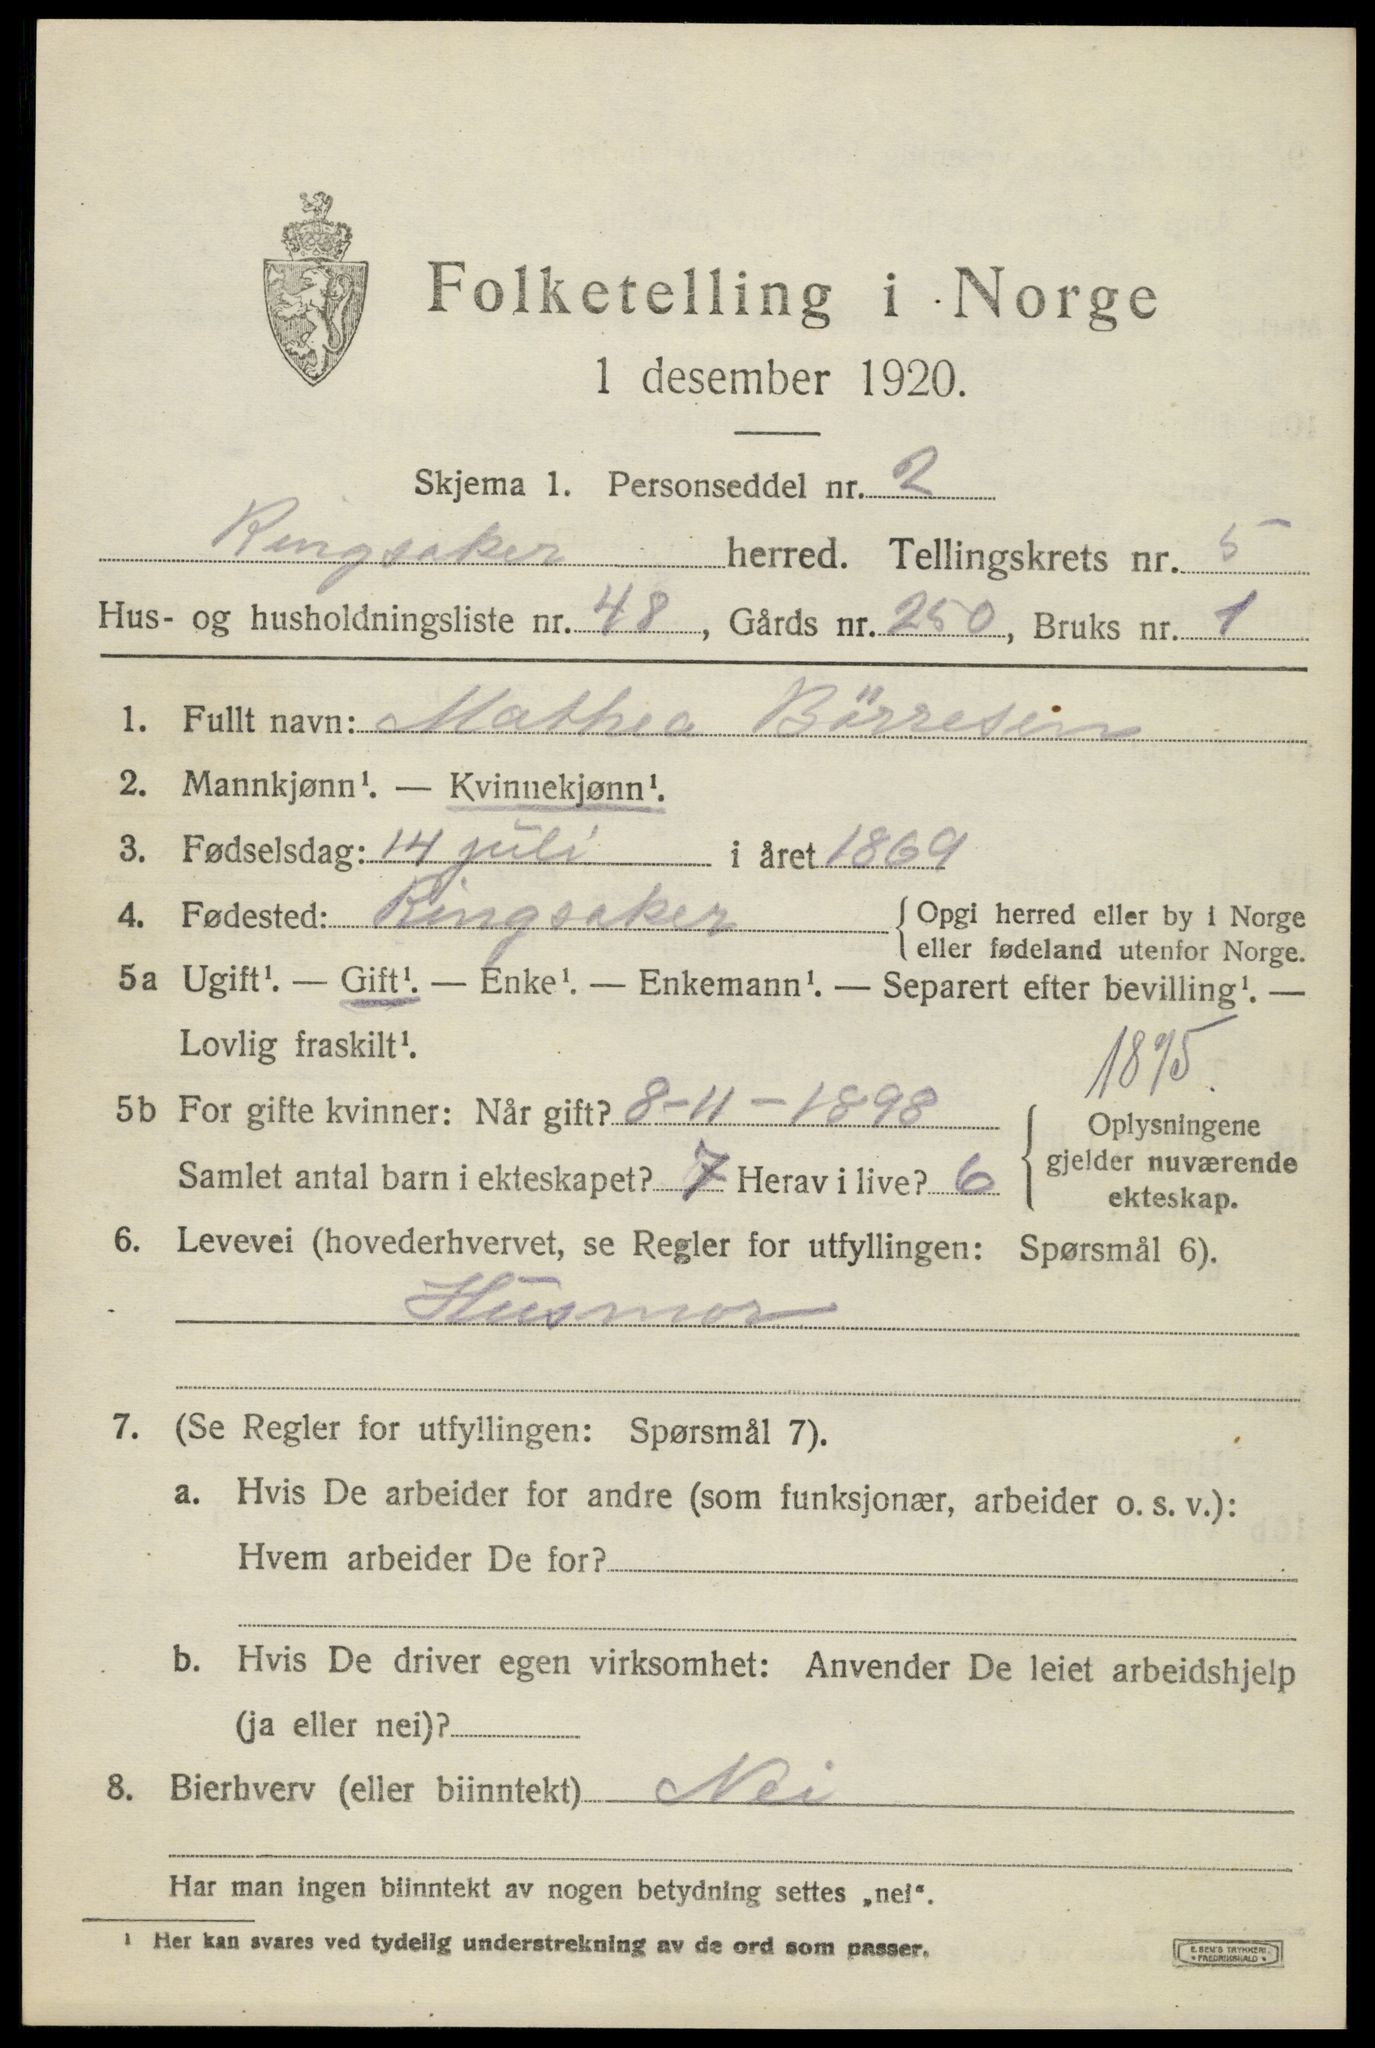 Folketelling i Norge
1 desember 1920.
Skjema 1. Personseddel nr. 2
Ringsaker herred. Tellingskrets nr. 5
Hus- og husholdningsliste nr. 48, Gårds nr. 250, Bruks nr. 1
1. Fullt navn: Mathea Börresen
2. Mannkjønn¹. — Kvinnekjønn¹.
3. Fødselsdag: 14 juli i året 1869
4. Fødested: Ringsaker {Opgi herred eller by i Norge
eller fødeland utenfor Norge.
5a Ugift¹. — Gift¹. — Enke¹. — Enkemann¹. — Separert efter bevilling¹. —
Lovlig fraskilt¹.
1895.
5b For gifte kvinner: Når gift? 8-11-1898
Samlet antal barn i ekteskapet? 7 Herav i live? 6
Oplysningene
gjelder nuværende
ekteskap.
6. Levevei (hovederhvervet, se Regler for utfyllingen: Spørsmål 6).
Husmor
7. (Se Regler for utfyllingen: Spørsmål 7).
a. Hvis De arbeider for andre (som funksjonær, arbeider o. s. v.):
Hvem arbeider De for?
b. Hvis De driver egen virksomhet: Anvender De leiet arbeidshjelp
(ja eller nei)?
8. Bierhverv (eller biinntekt) Nei
Har man ingen biinntekt av nogen betydning settes „nei“.
¹ Her kan svares ved tydelig understrekning av de ord som passer.
E. SEM'S TRYKKERI
FREDRIKSHALD